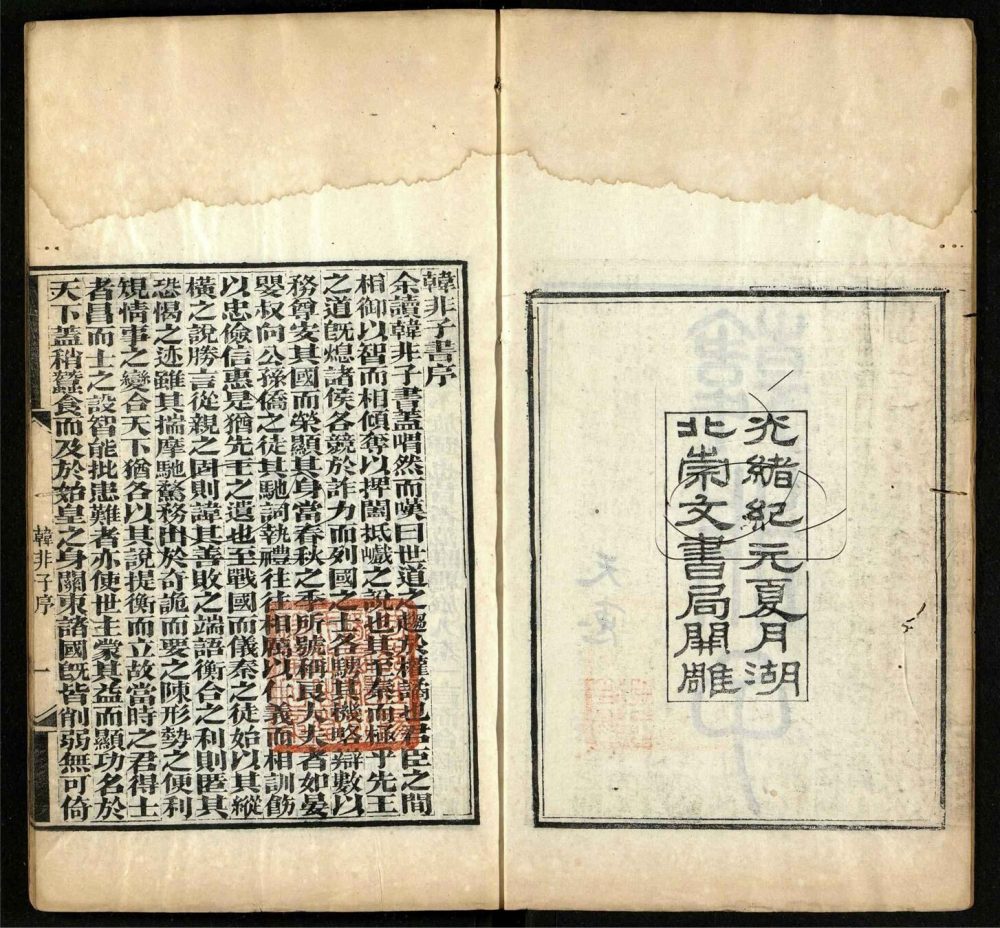 光緒紀元夏月湖
北崇文書局開雕
韓非子書序
余讀韓非子書蓋喟然而嘆曰世道之趨於權譎也君臣之間
相御以智而相傾奪以捭闔抵巇之說也其至秦而極乎先王
之道旣熄諸侯各競於詐力而列國之士各騁其機略辯數以
務尊安其國而榮顯其身當春秋之季所號稱良大夫者如晏
嬰叔向公孫僑之徒其馳詞執禮往往相屬以仁義而相訓飭
以忠儉信惠是猶先王之遺也至戰國而儀秦之徒始以其縱
橫之說勝言從親之固則諱其善敗之端語衡合之利則匿其
恐愒之迹雖其揣摩馳騖務出於奇詭而要之陳形勢之便利
規情事之變合天下猶各以其說提衡而立故當時之君得士
者昌而士之設智能批患難者亦使世主蒙其益而顯功名於
天下蓋稍蠶食而及於始皇之身關東諸國旣皆削弱無可倚
韓非子序 一